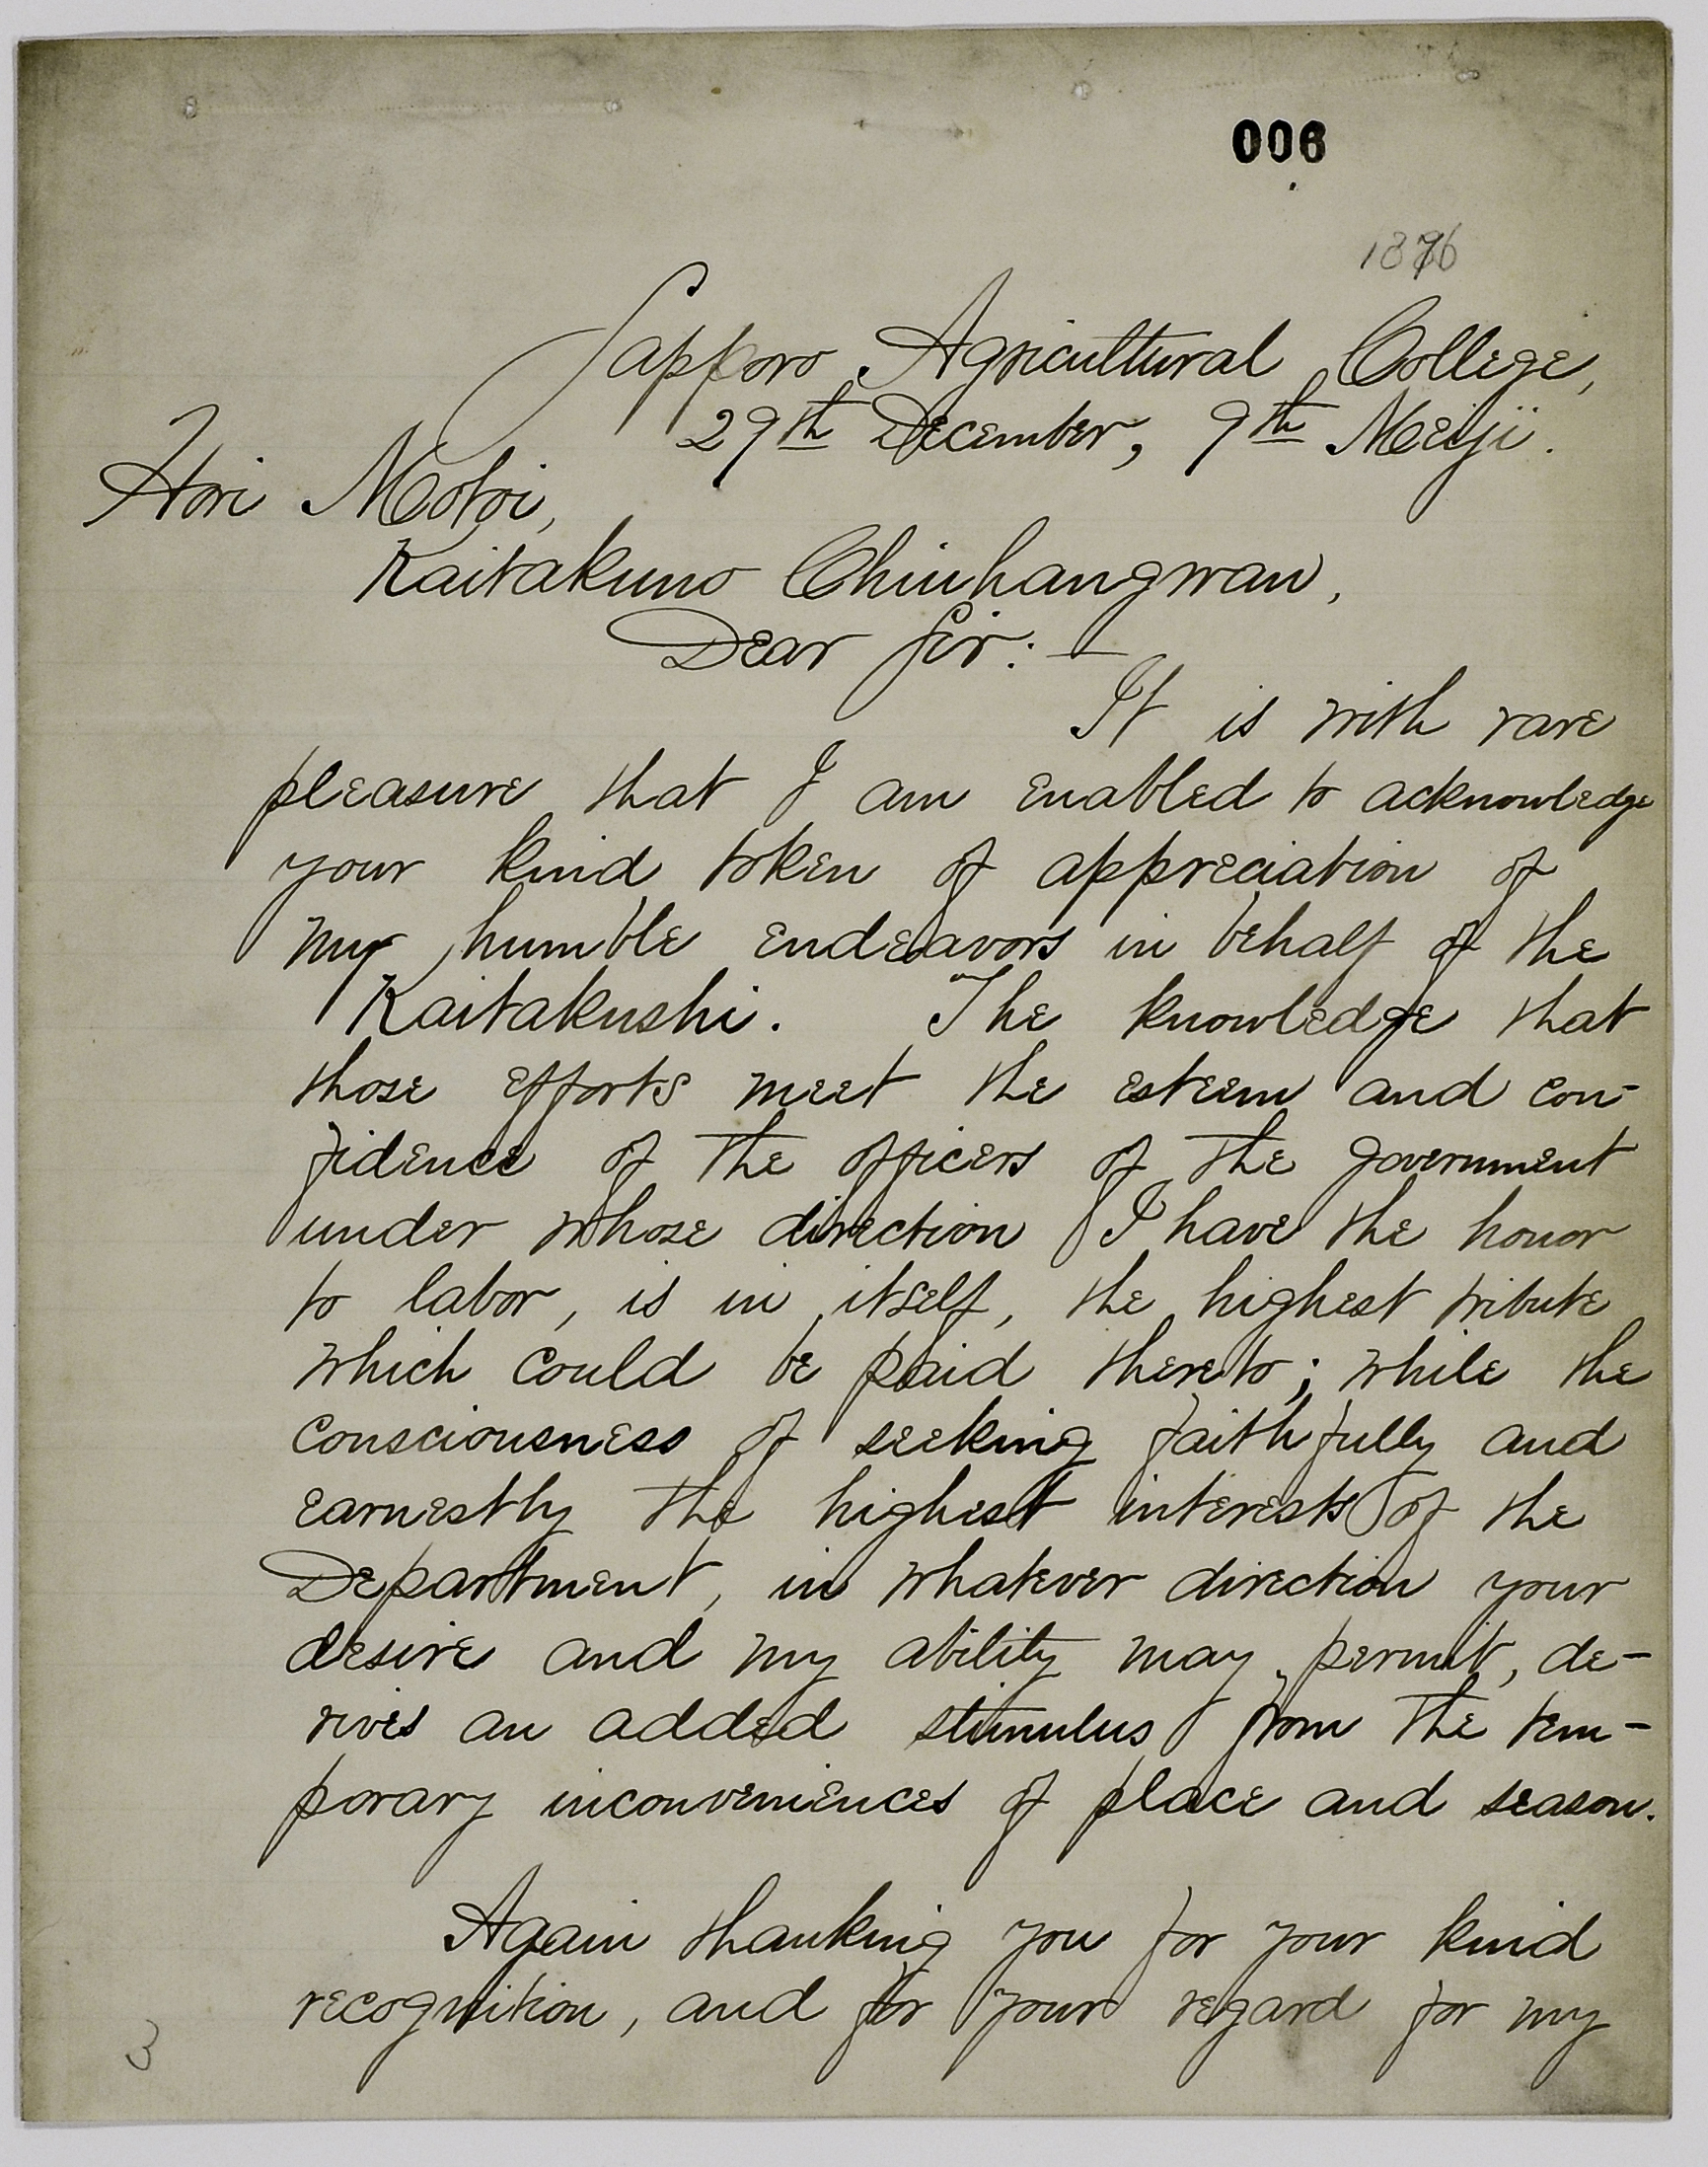 006
1876
Sapporo Agricultural College,
29th December, 9th Meiji.
Hori Motoi,
Kaitakuno Chiuhangwan,
Dear Sir: —
It is with rare
pleasure that I am enabled to acknowledge
your kind token of appreciation of
my humble endeavors in behalf of the
Kaitakushi. The knowledge that
those efforts meet the esteem and con-
fidence of the officers of the government
under whose direction I have the honor
to labor, is in itself, the highest tribute
which could be paid thereto; while the
consciousness of seeking faithfully and
earnestly the highest interests of the
Department, in whatever direction your
desire and my ability may permit, de-
rives an added stimulus from the tem-
porary inconveniences of place and season.
Again thanking you for your kind
recognition, and for your regard for my
3